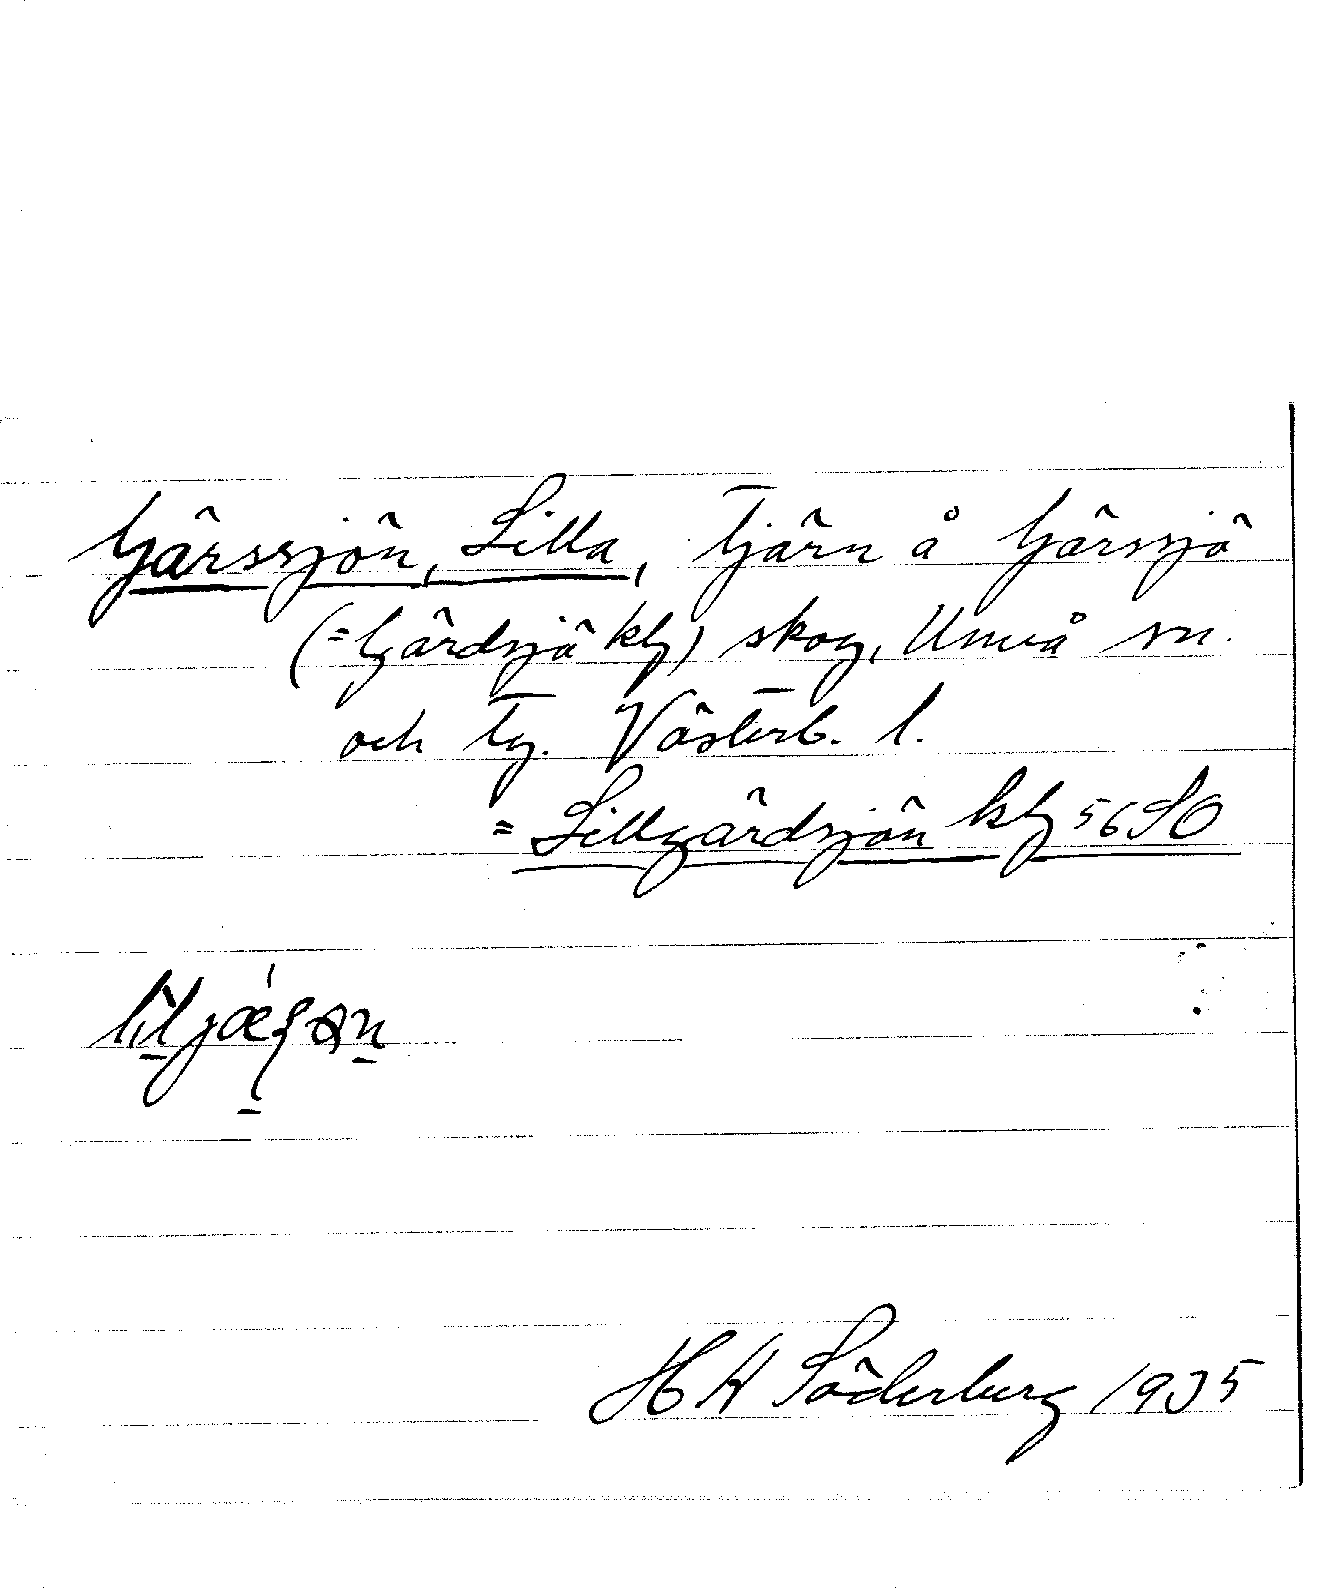 Gärssjön, Lilla, Tjärn å Gärssjö
(=Gärdsjö kbg) skog, Umeå sn.
och tg. Västerb. l.
= Lillgärdsjön kbg 56 SO
H A Söderberg 1935